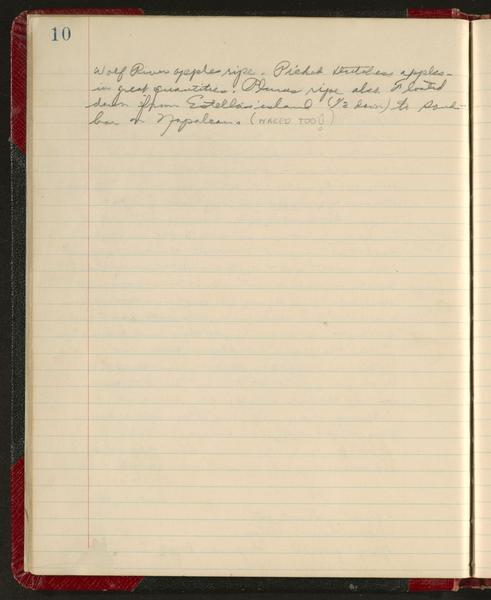 10
Wolf River apples ripe. Picked apples
in great quantities. Plums ripe also Floated
down from Estellas island (1/2 down) to sand-
bar on Napoleons (NAKED TOO!)